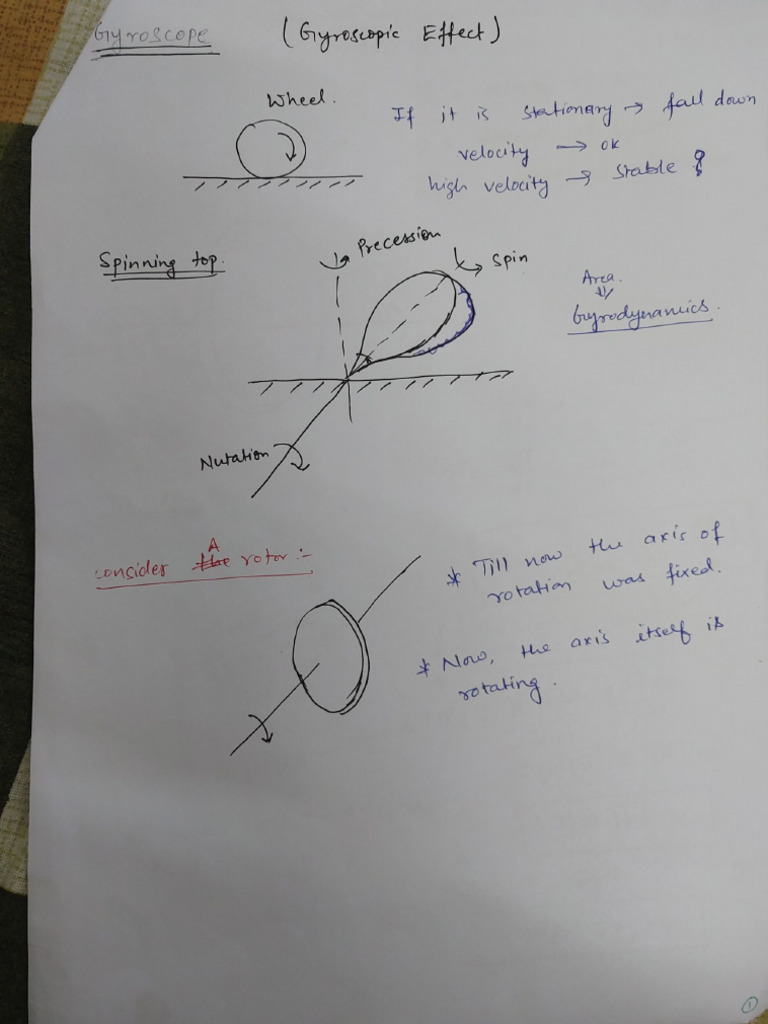 Gyroscope (Gyroscopic Effect)
Wheel.
If it is stationary → fall down
velocity → ok
high velocity → stable
Spinning top.
Precession
Spin
Area.
⇓
Gyrodynamics.
Nutation
consider A rotor :-
* Till now the axis of
rotation was fixed.
* Now, the axis itself is
rotating.
1